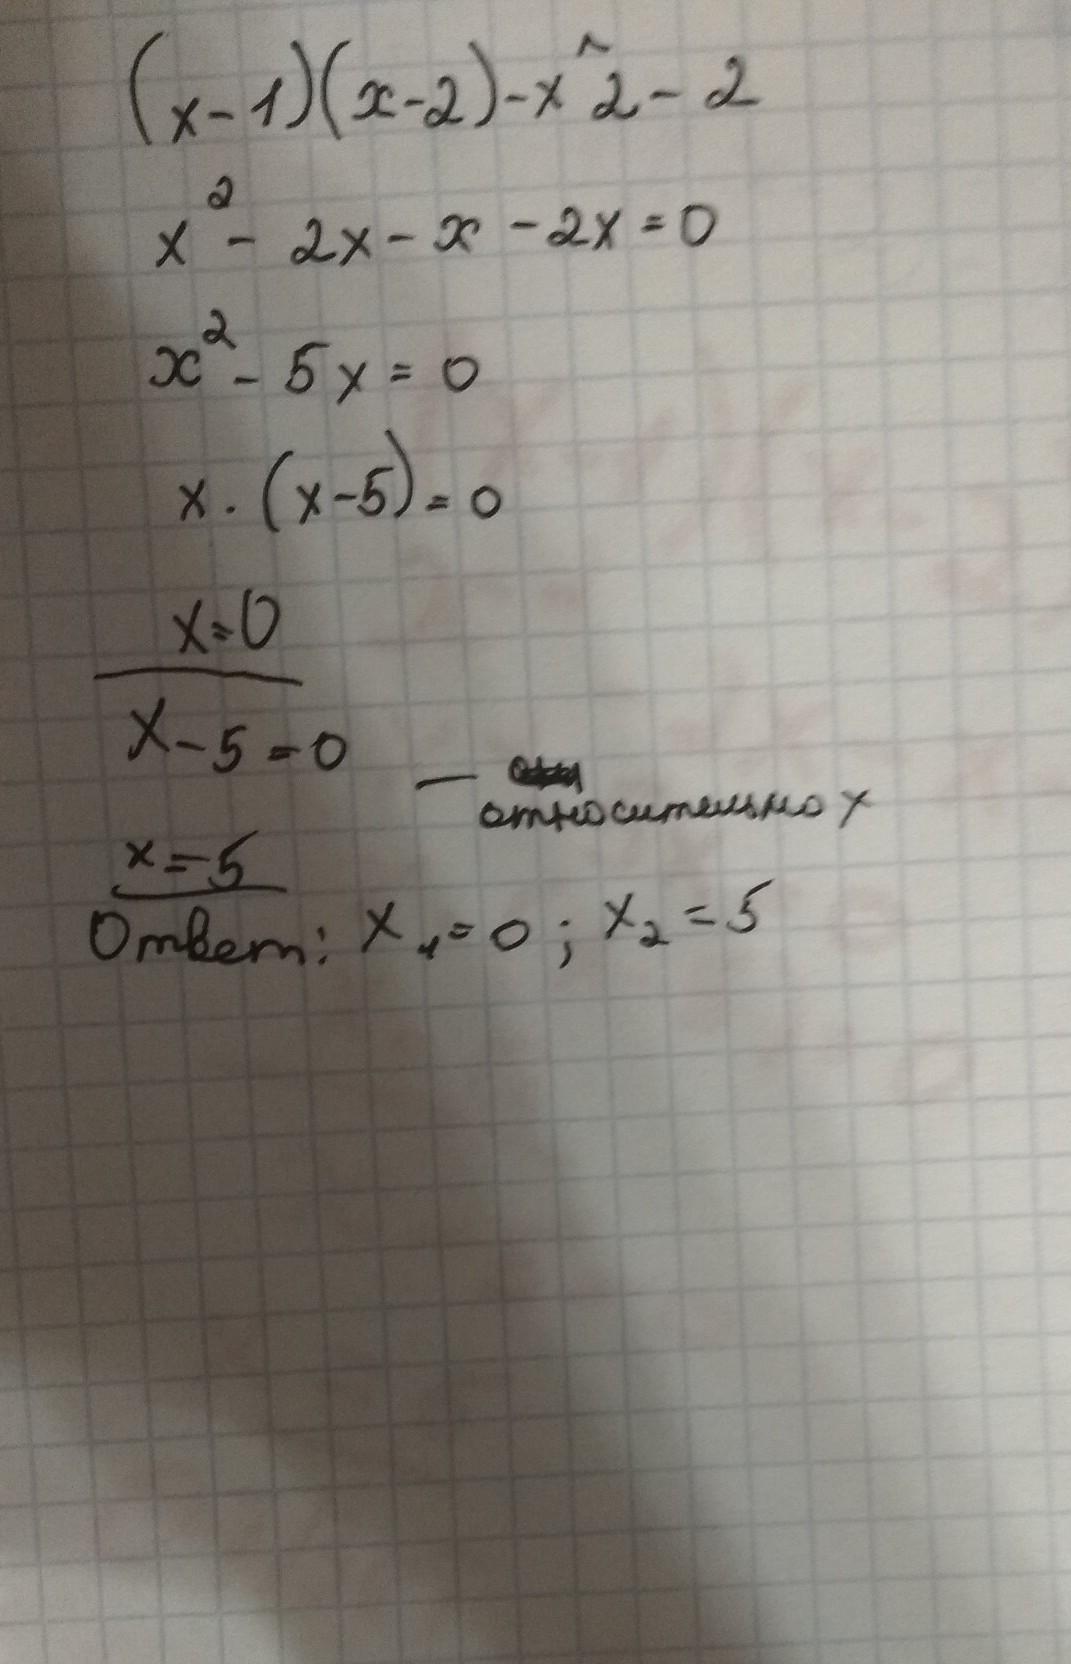 (x-1)(x-2)-x^2-2
x² - 2x - x - 2x = 0
x² - 5x = 0
x · (x-5) = 0
x=0
x-5=0
— относительно x
x=5
Ответ: x₁=0; x₂=5